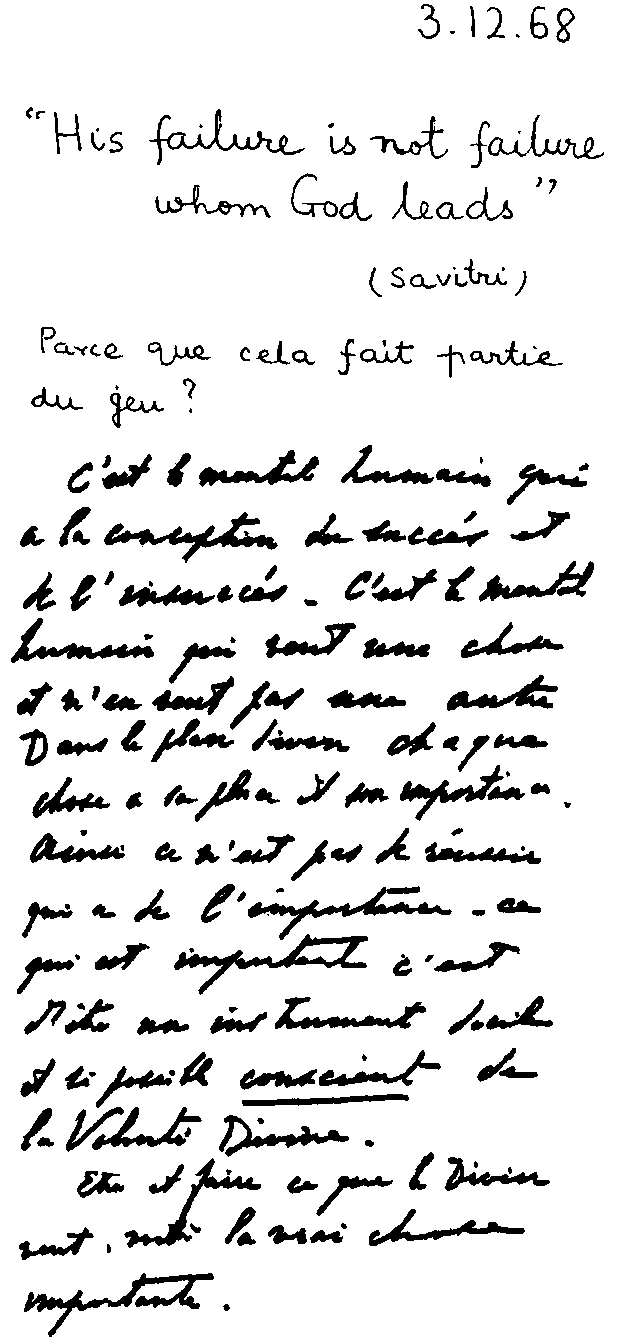 3.12.68
"His failure is not failure
whom God leads"
(Savitri)
Parce que cela fait partie
du jeu ?
C'est le mental humain qui
a la conception du succès et
de l'insuccès. C'est le mental
humain qui veut une chose
et n'en veut pas une autre
Dans le plan divin chaque
chose a sa place et son importance.
Ainsi ce n'est pas de réussir
qui a de l'importance - ce
qui est important c'est
d'être un instrument docile
et si possible conscient de
la Volonté Divine.
Etre et faire ce que le Divin
veut, voilà la vrai chose
importante.